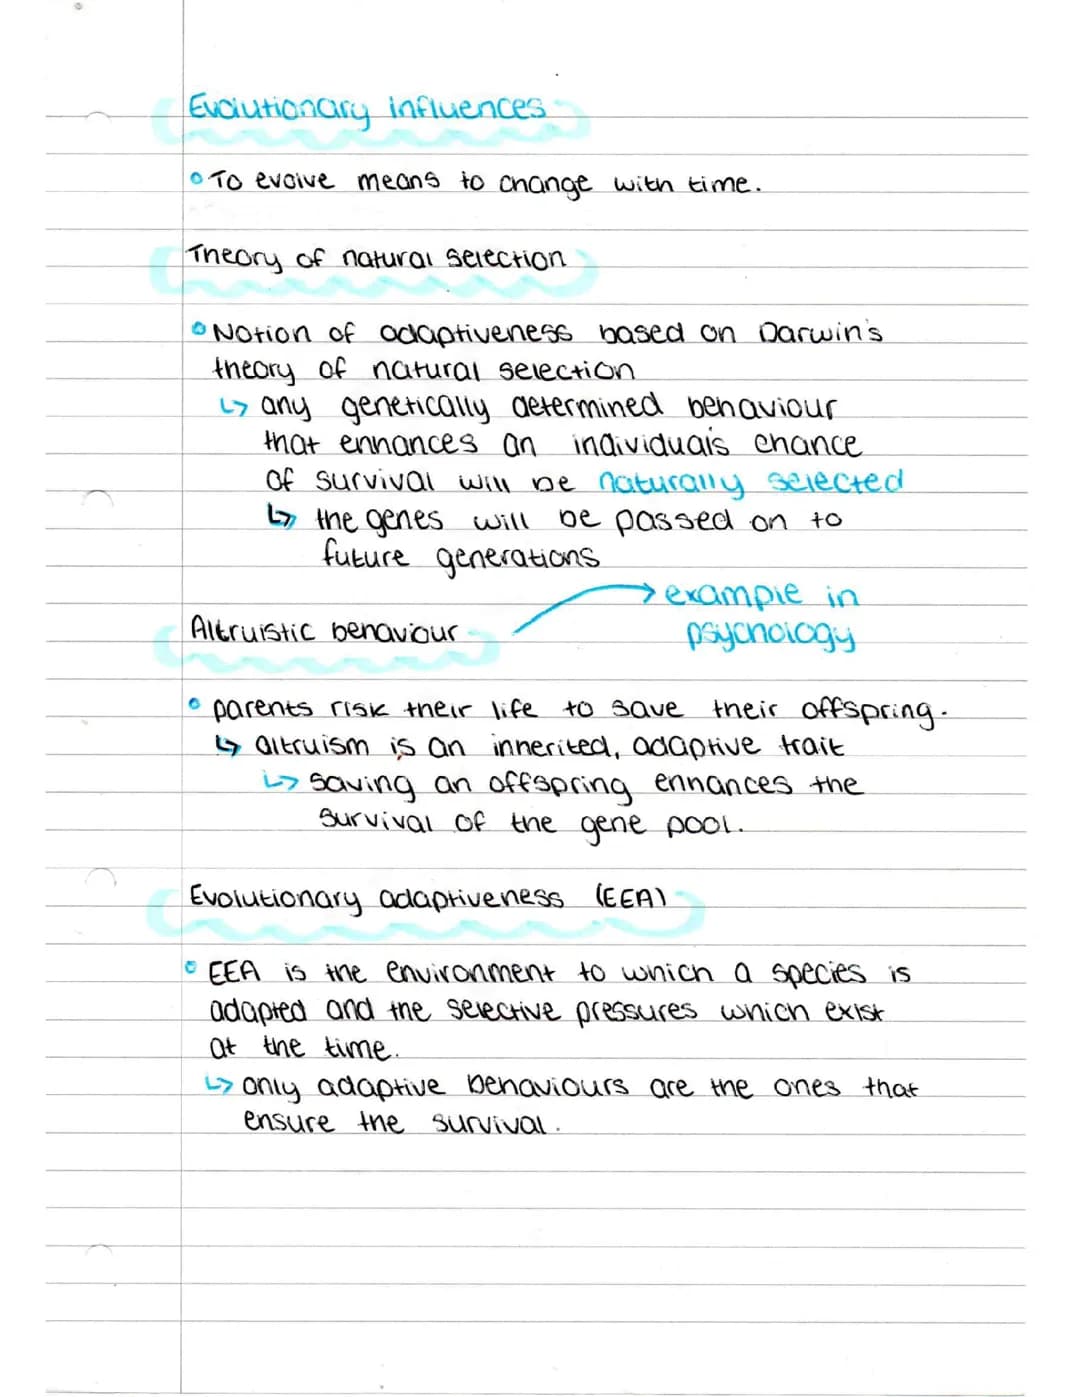 Evolutionary influences
To evolve means to change with time.
Theory of natural selection
Notion of adaptiveness based on Darwin's
theory of natural selection
↳ any genetically determined behaviour
that enhances an individual's chance
of survival will be naturally selected
↳ the genes will be passed on to
future generations
→ example in
psychology
Altruistic behaviour
parents risk their life to save their offspring.
↳ altruism is an inherited, adaptive trait
↳ saving an offspring enhances the
survival of the gene pool.
Evolutionary adaptiveness (EEA)
EEA is the environment to which a species is
adapted and the selective pressures which exist
at the time.
↳ only adaptive behaviours are the ones that
ensure the survival.